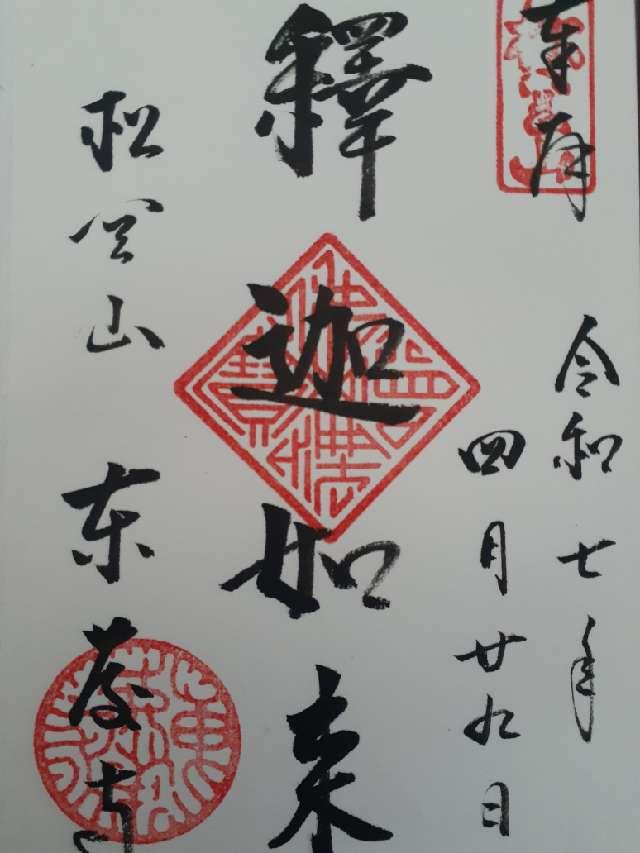 奉拝
令和七年
四月廿九日
釋迦如来
松岡山 東慶寺